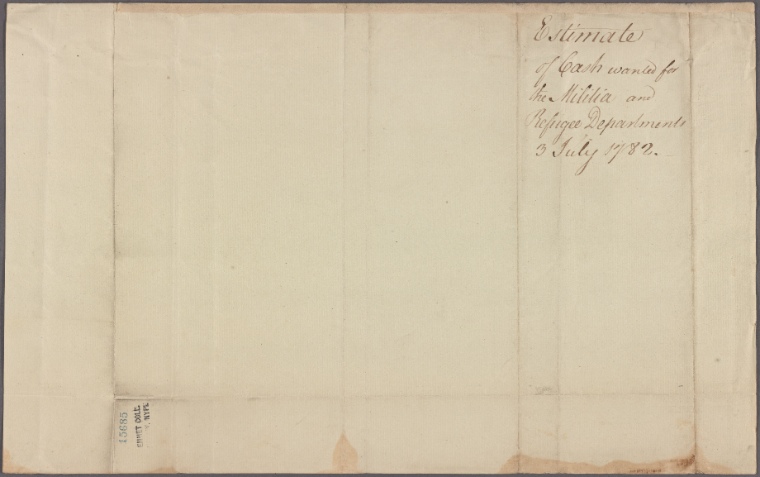 Estimate
of Cash wanted for
the Militia and
Refugee Departments
3 July 1782.
15685
EMMET COLL.
NYPL